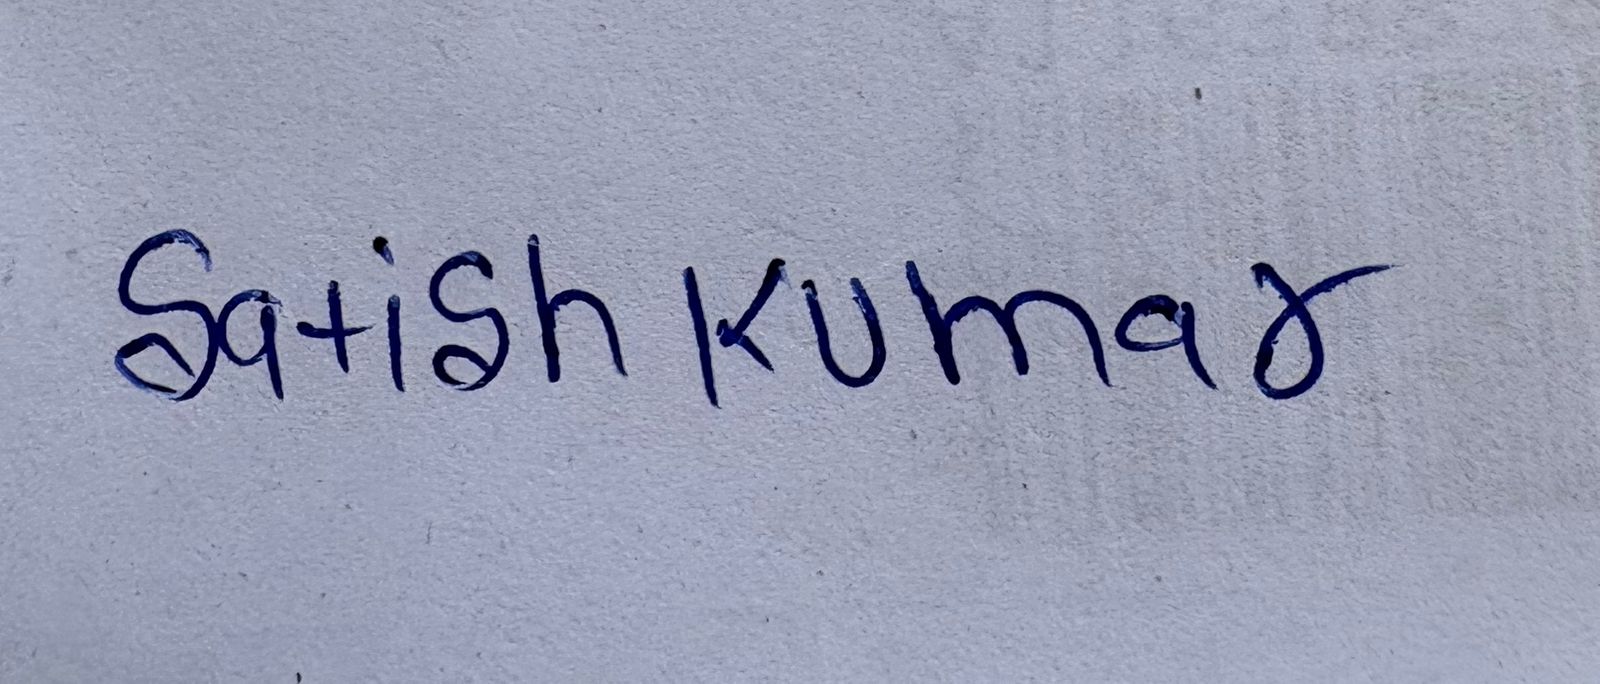 Satish Kumar